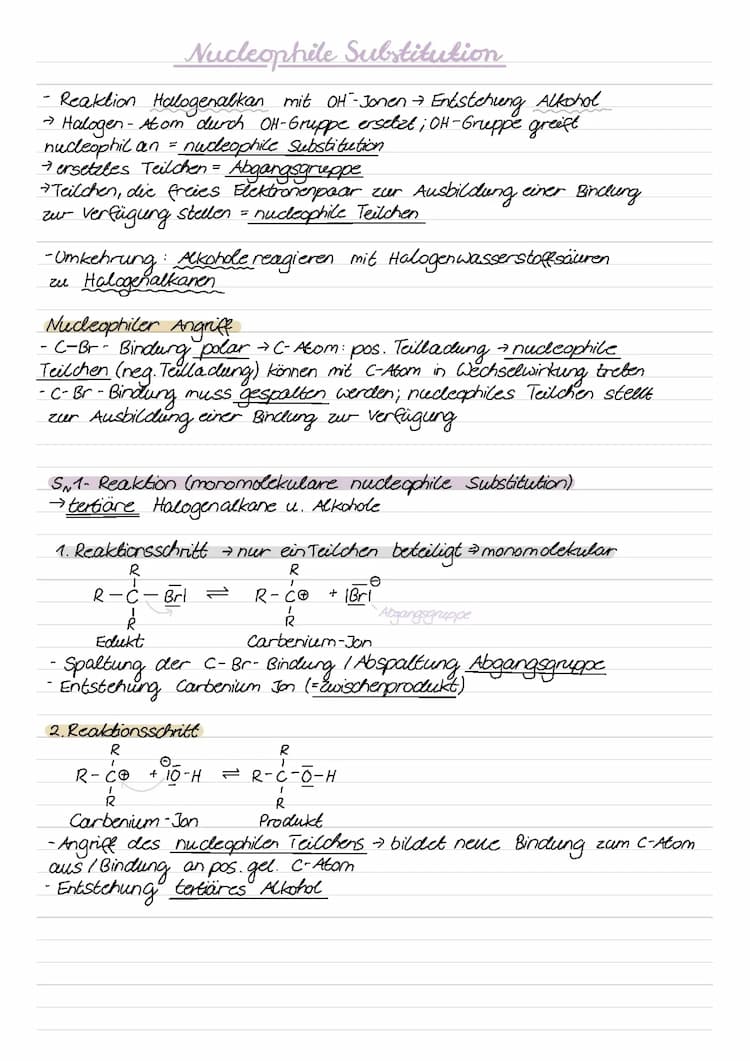 Nucleophile Substitution
- Reaktion Halogenalkan mit OH⁻-Jonen → Entstehung Alkohol
→ Halogen-Atom durch OH-Gruppe ersetzt; OH-Gruppe greift
nucleophil an = nucleophile Substitution
→ ersetztes Teilchen = Abgangsgruppe
→ Teilchen, die freies Elektronenpaar zur Ausbildung einer Bindung
zur Verfügung stellen = nucleophile Teilchen
- Umkehrung: Alkohole reagieren mit Halogenwasserstoffsäuren
zu Halogenalkanen
Nucleophiler Angriff
- C-Br- Bindung polar → C-Atom: pos. Teilladung → nucleophile
Teilchen (neg. Teilladung) können mit C-Atom in Wechselwirkung treten
- C-Br-Bindung muss gespalten werden; nucleophiles Teilchen stellt
zur Ausbildung einer Bindung zur Verfügung
SN1- Reaktion (monomolekulare nucleophile Substitution)
→ tertiäre Halogenalkane u. Alkohole
1. Reaktionsschritt → nur ein Teilchen beteiligt ⇒ monomolekular
R R
R-C-Br| ⇌ R-C⊕ + |Br|⊖
R R Abgangsgruppe
Edukt Carbenium-Jon
- Spaltung der C-Br-Bindung / Abspaltung Abgangsgruppe
- Entstehung Carbenium Jon (=Zwischenprodukt)
2. Reaktionsschritt
R R
R-C⊕ + |O⊖-H ⇌ R-C-O-H
R R
Carbenium-Jon Produkt
- Angriff des nucleophilen Teilchens → bildet neue Bindung zum C-Atom
aus / Bindung an pos. gel. C-Atom
- Entstehung tertiäres Alkohol